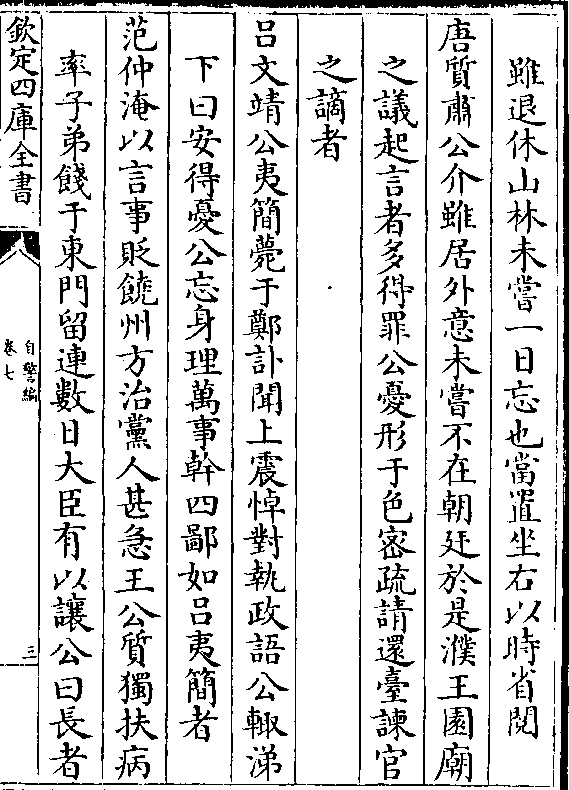 雖退休山林未嘗一日忘也當置坐右以時省閱
唐質肅公介雖居外意未嘗不在朝廷於是濮王園廟
之議起言者多得罪公憂形于色密疏請還臺諫官
之謫者
呂文靖公夷簡薨于鄭訃聞上震悼對執政語公輙涕
下曰安得憂公忘身理萬事幹四鄙如呂夷簡者
范仲淹以言事貶饒州方治黨人甚急王公質獨扶病
率子弟餞于東門留連數日大臣有以讓公曰長者
欽定四庫全書
自警編
卷七
三